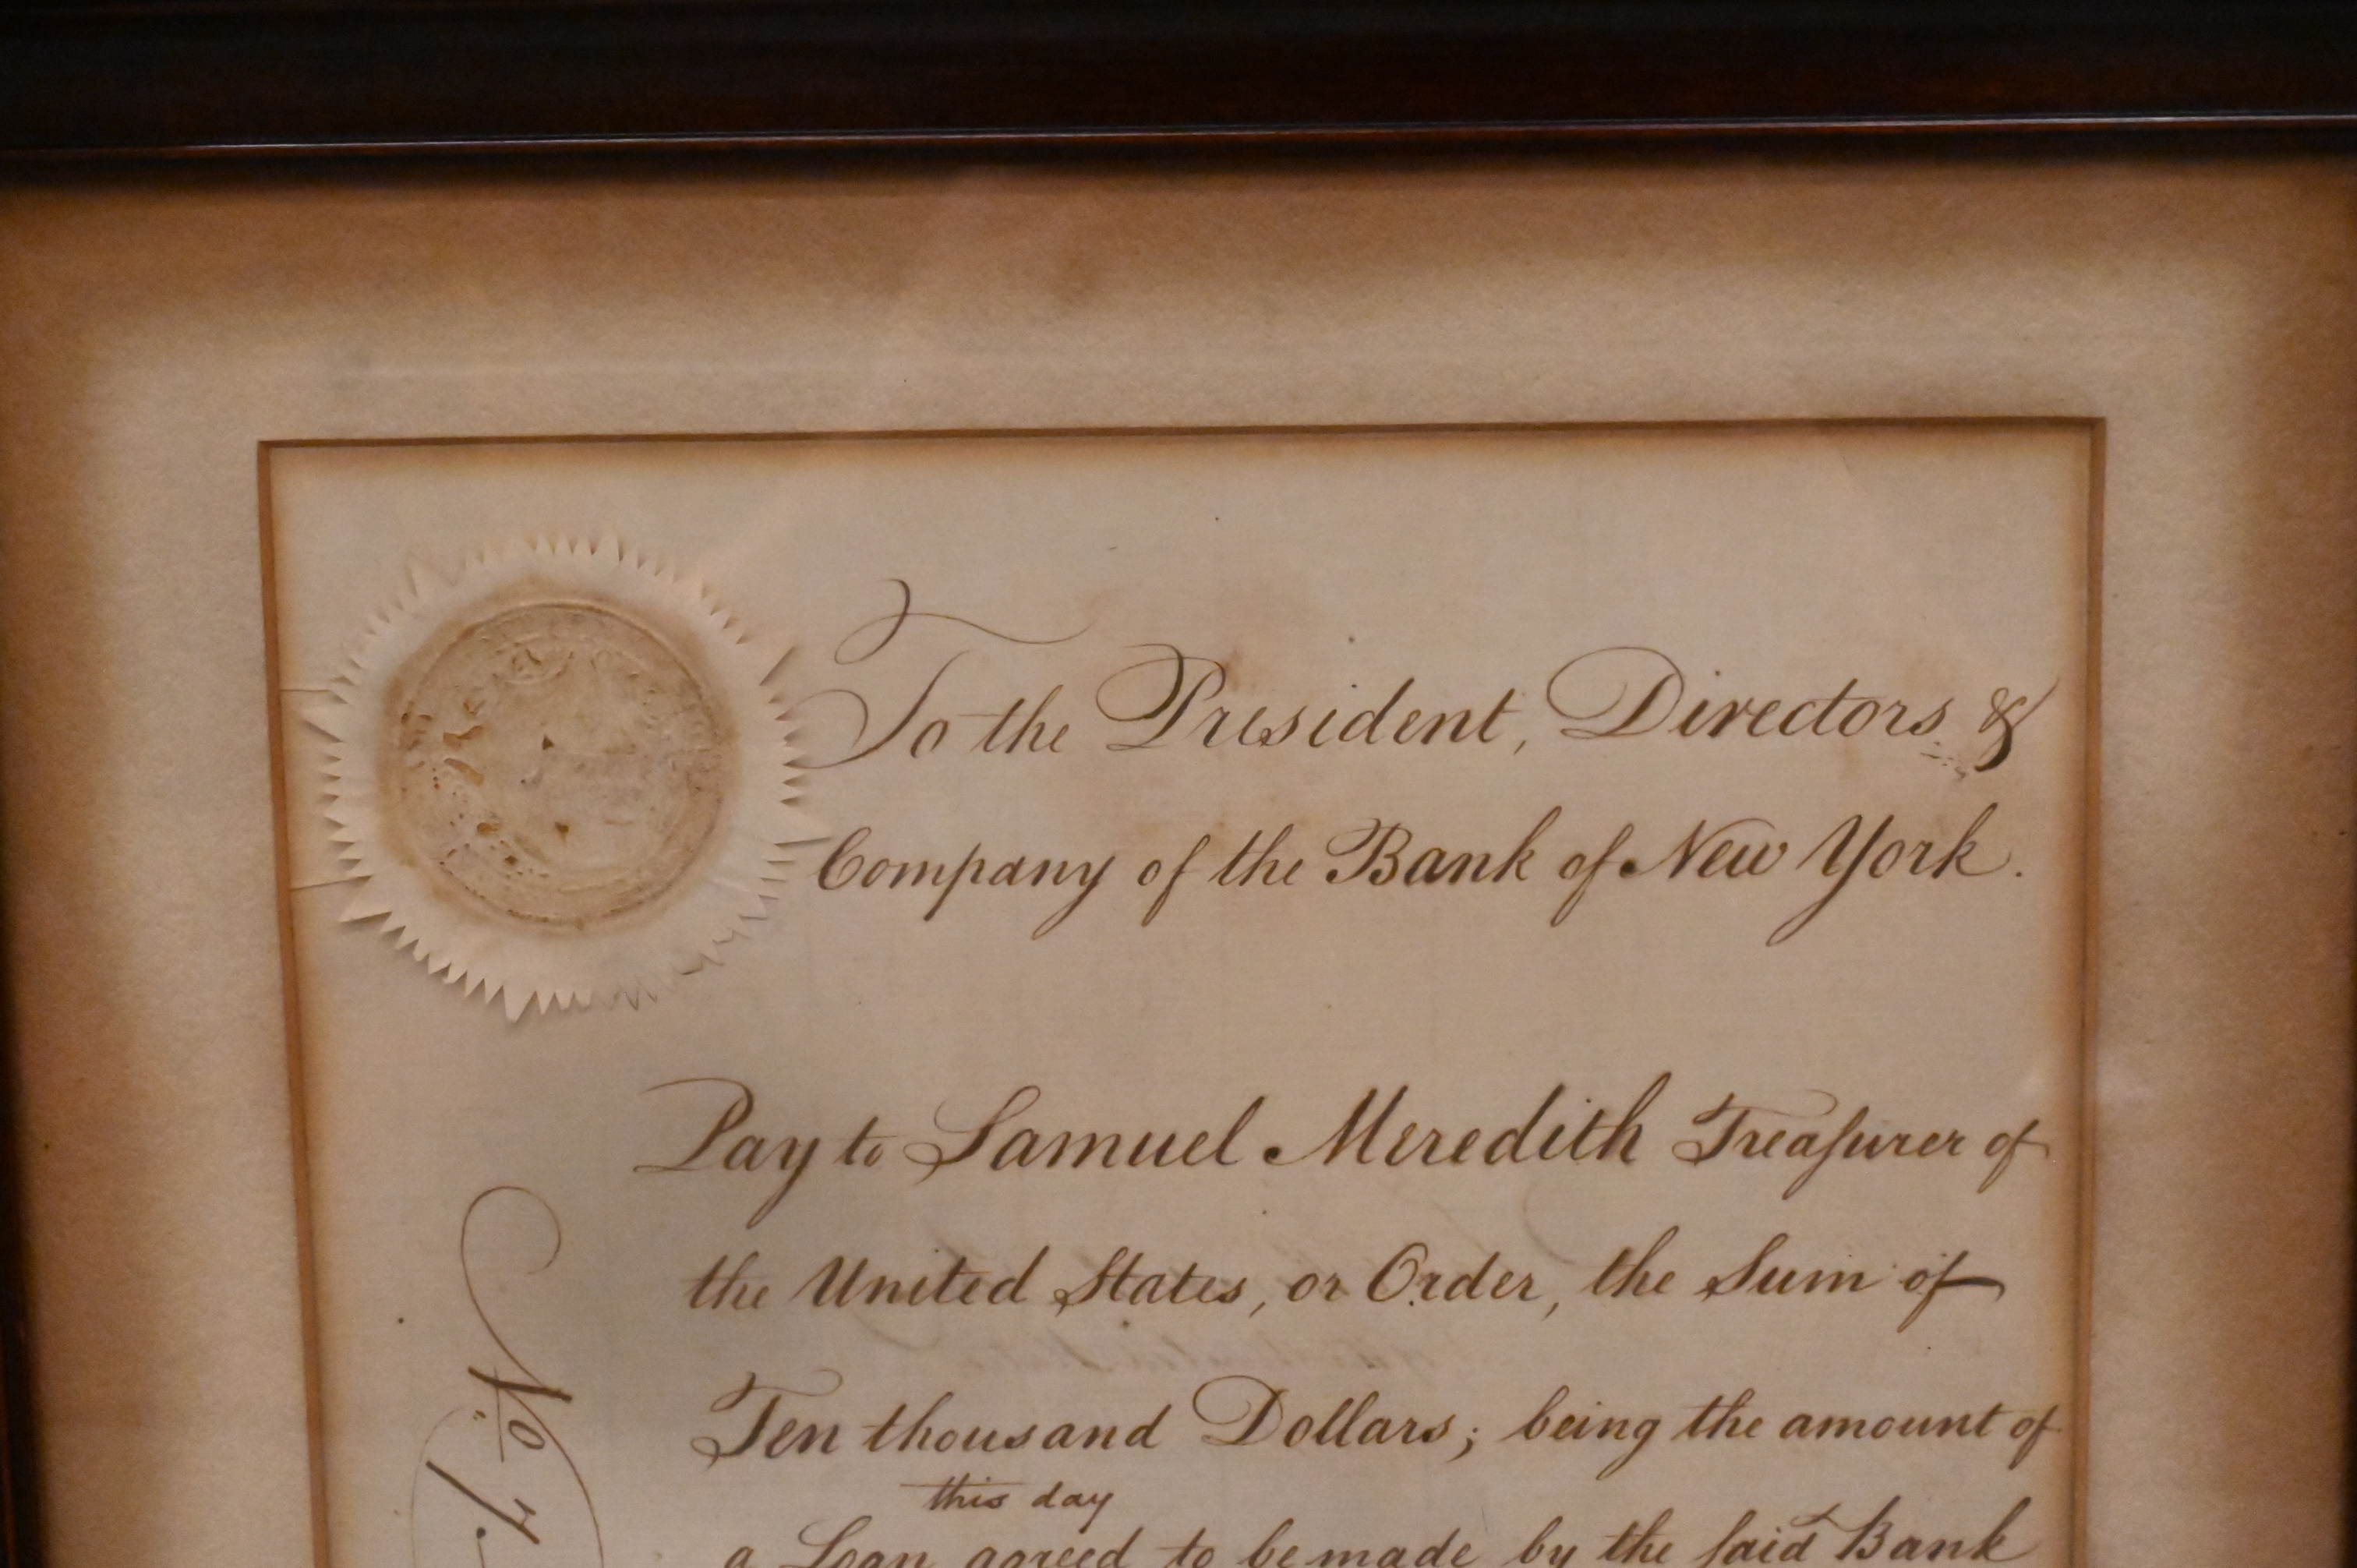 To the President, Directors &
Company of the Bank of New York.
Pay to Samuel Meredith Treaſurer of
the United States, or Order, the Sum of
Ten thousand Dollars; being the amount of
this day
a Loan agreed to be made by the ſaid Bank
No